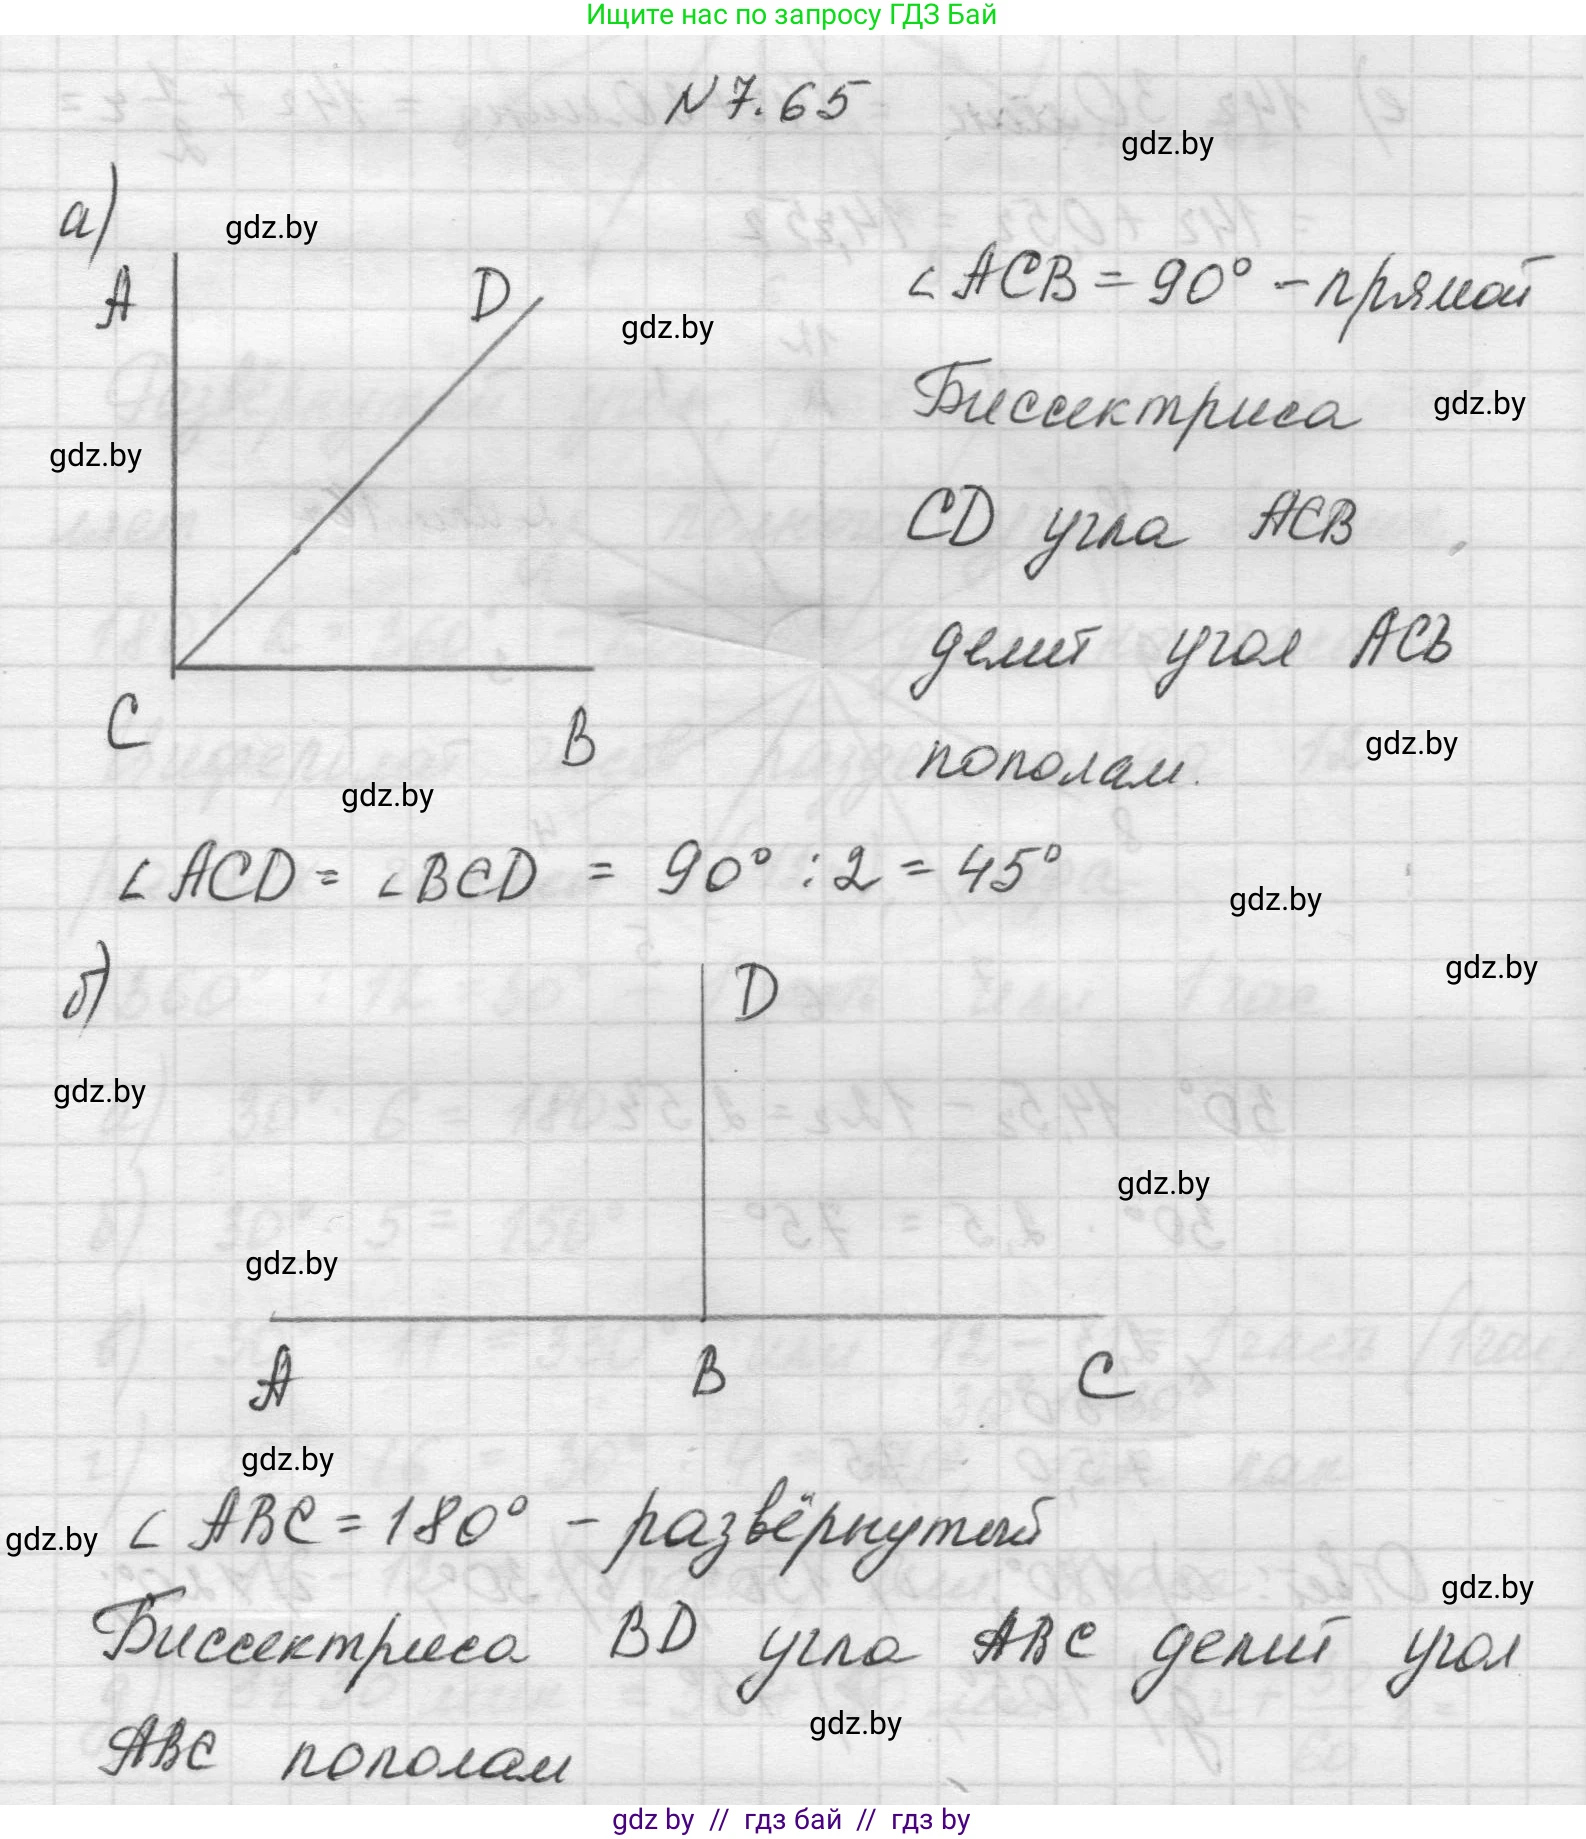 Ищите нас по запросу ГДЗ Бай
N 7.65
gdz.by
а)
gdz.by
A
D
gdz.by
∠ACB = 90° - прямой
Биссектриса
gdz.by
gdz.by
CD угла ACB
делит угол ACB
C
B
пополам.
gdz.by
gdz.by
∠ACD = ∠BCD = 90° : 2 = 45°
gdz.by
б)
D
gdz.by
gdz.by
gdz.by
gdz.by
A
B
C
gdz.by
∠ABC = 180° - развёрнутый
gdz.by
gdz.by
Биссектриса BD угла ABC делит угол
gdz.by
ABC пополам
gdz by // гдз бай // гдз by